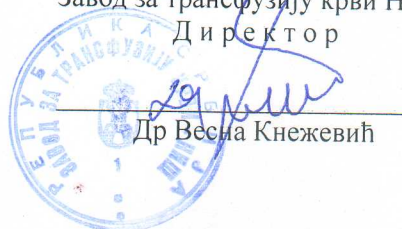 Завод за трансфузију крви Н
Директор
Др Весна Кнежевић
РЕПУБЛИКА СРБИЈА
ЗАВОД ЗА ТРАНСФУЗИЈУ
1